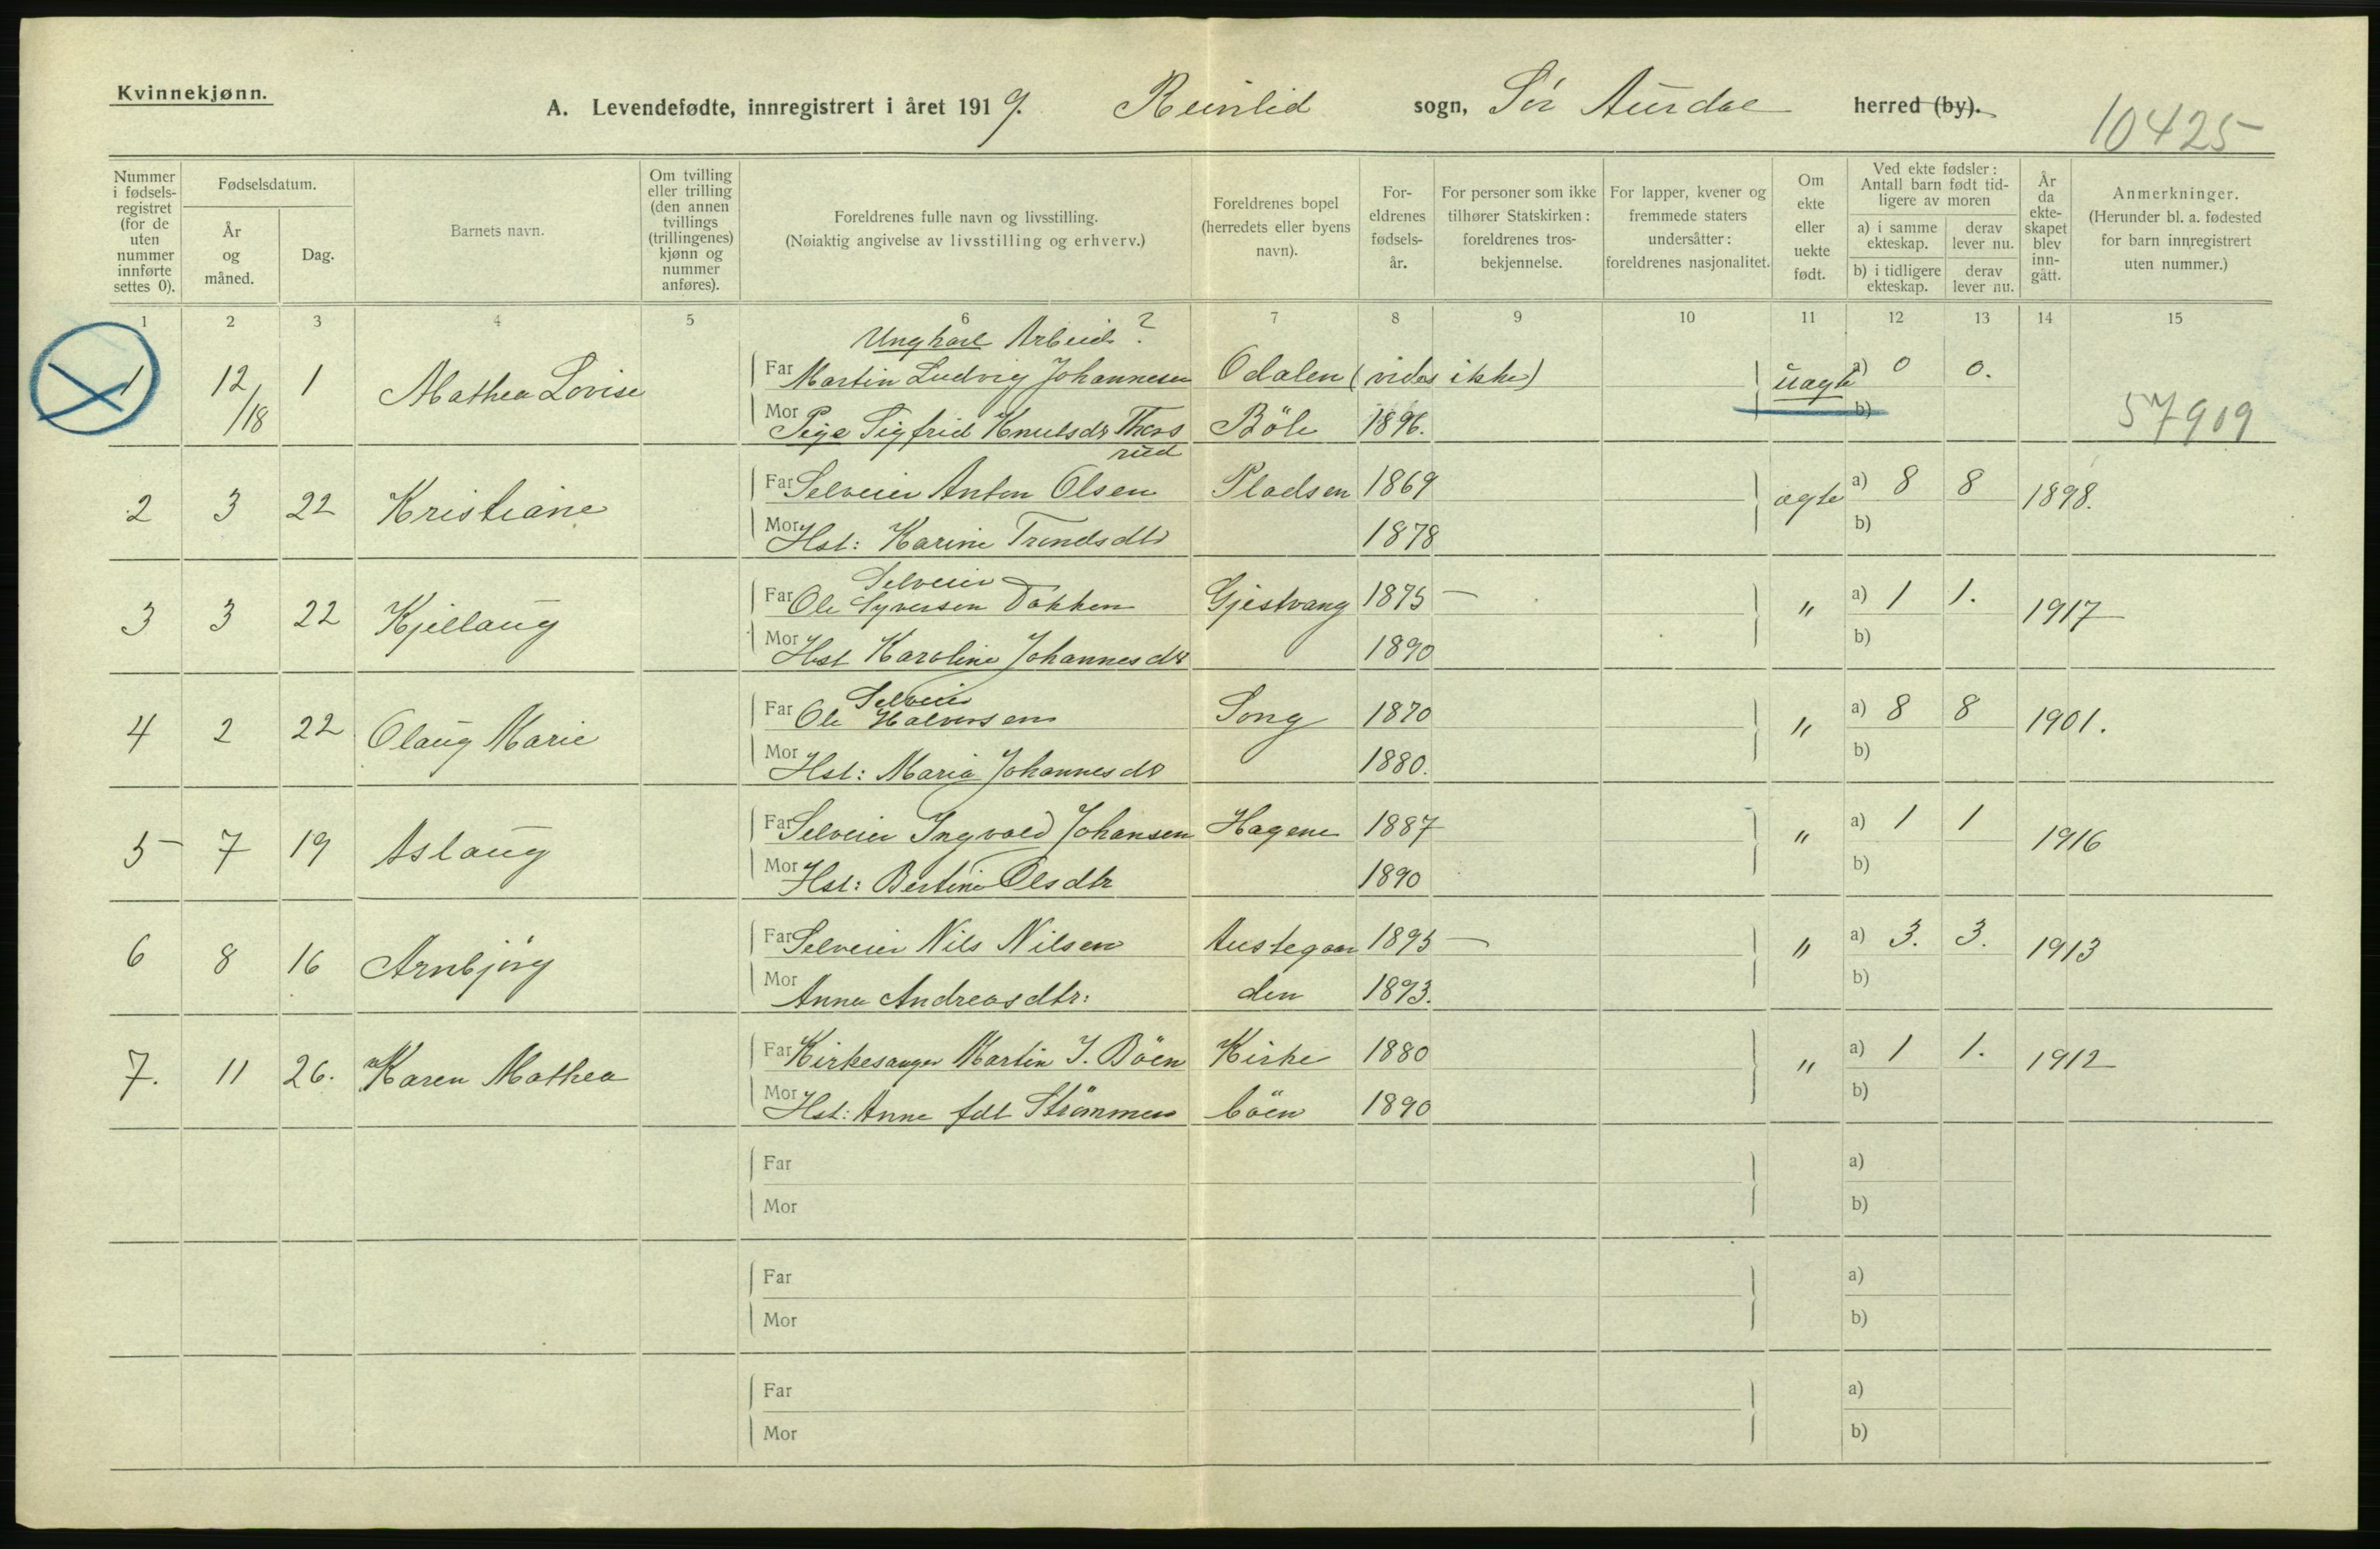 Kvinnekjønn.
A. Levendefødte, innregistrert i året 1919. Reinlid sogn, Sör Aurdal herred (by).
10425
Nummer i fødselsregistret (for de uten nummer innførte settes 0).
Fødselsdatum.
År og måned.
Dag.
Barnets navn.
Om tvilling eller trilling (den annen tvillings (trillingenes) kjønn og nummer anføres).
Foreldrenes fulle navn og livsstilling.
(Nøiaktig angivelse av livsstilling og erhverv.)
Foreldrenes bopel (herredets eller byens navn).
Foreldrenes fødselsår.
For personer som ikke tilhører Statskirken: foreldrenes trosbekjennelse.
For lapper, kvener og fremmede staters undersåtter: foreldrenes nasjonalitet.
Om ekte eller uekte født.
Ved ekte fødsler: Antall barn født tidligere av moren
a) i samme ekteskap.
derav lever nu.
b) i tidligere ekteskap.
derav lever nu.
År da ekteskapet blev inngått.
Anmerkninger.
(Herunder bl. a. fødested for barn innregistrert uten nummer.)
1 2 3 4 5 6 7 8 9 10 11 12 13 14 15
Ungkarl Arbeid. ?
1 12/18 1 Mathea Lovise Far Martin Ludvig Johannesen Odalen (vides ikke) uægte a) 0 0.
Mor Pige Sigfrid Knutsdr Thorsrud Böle 1896. b) 57909
2 3 22 Kristiane Far Selveier Anton Olsen Pladsen 1869 ægte a) 8 8 1898.
Mor Hst: Karine Trondsdtr 1878 b)
Selveier
3 3 22 Kjellaug Far Ole Syversen Dokken Gjestvang 1875 " a) 1 1. 1917
Mor Hst Karoline Johannesdtr 1890 b)
Selveier
4 2 22 Olaug Marie Far Ole Halvorsen Song 1870 " a) 8 8 1901.
Mor Hst: Maria Johannesdtr 1880. b)
5 7 19 Aslaug Far Selveier Ingvald Johansen Hagene 1887 " a) 1 1 1916
Mor Hst: Bertine Olsdtr 1890 b)
6 8 16 Arnbjörg Far Selveier Nils Nilsen Austegaar 1895 " a) 3. 3. 1913
Mor Anna Andreasdtr: den 1893. b)
7. 11 26. Karen Mathea Far Kirkesanger Martin I. Böen Kirke 1880 " a) 1 1. 1912
Mor Hst: Anne fdt Strömmen böen 1890 b)
Far a)
Mor b)
Far a)
Mor b)
Far a)
Mor b)